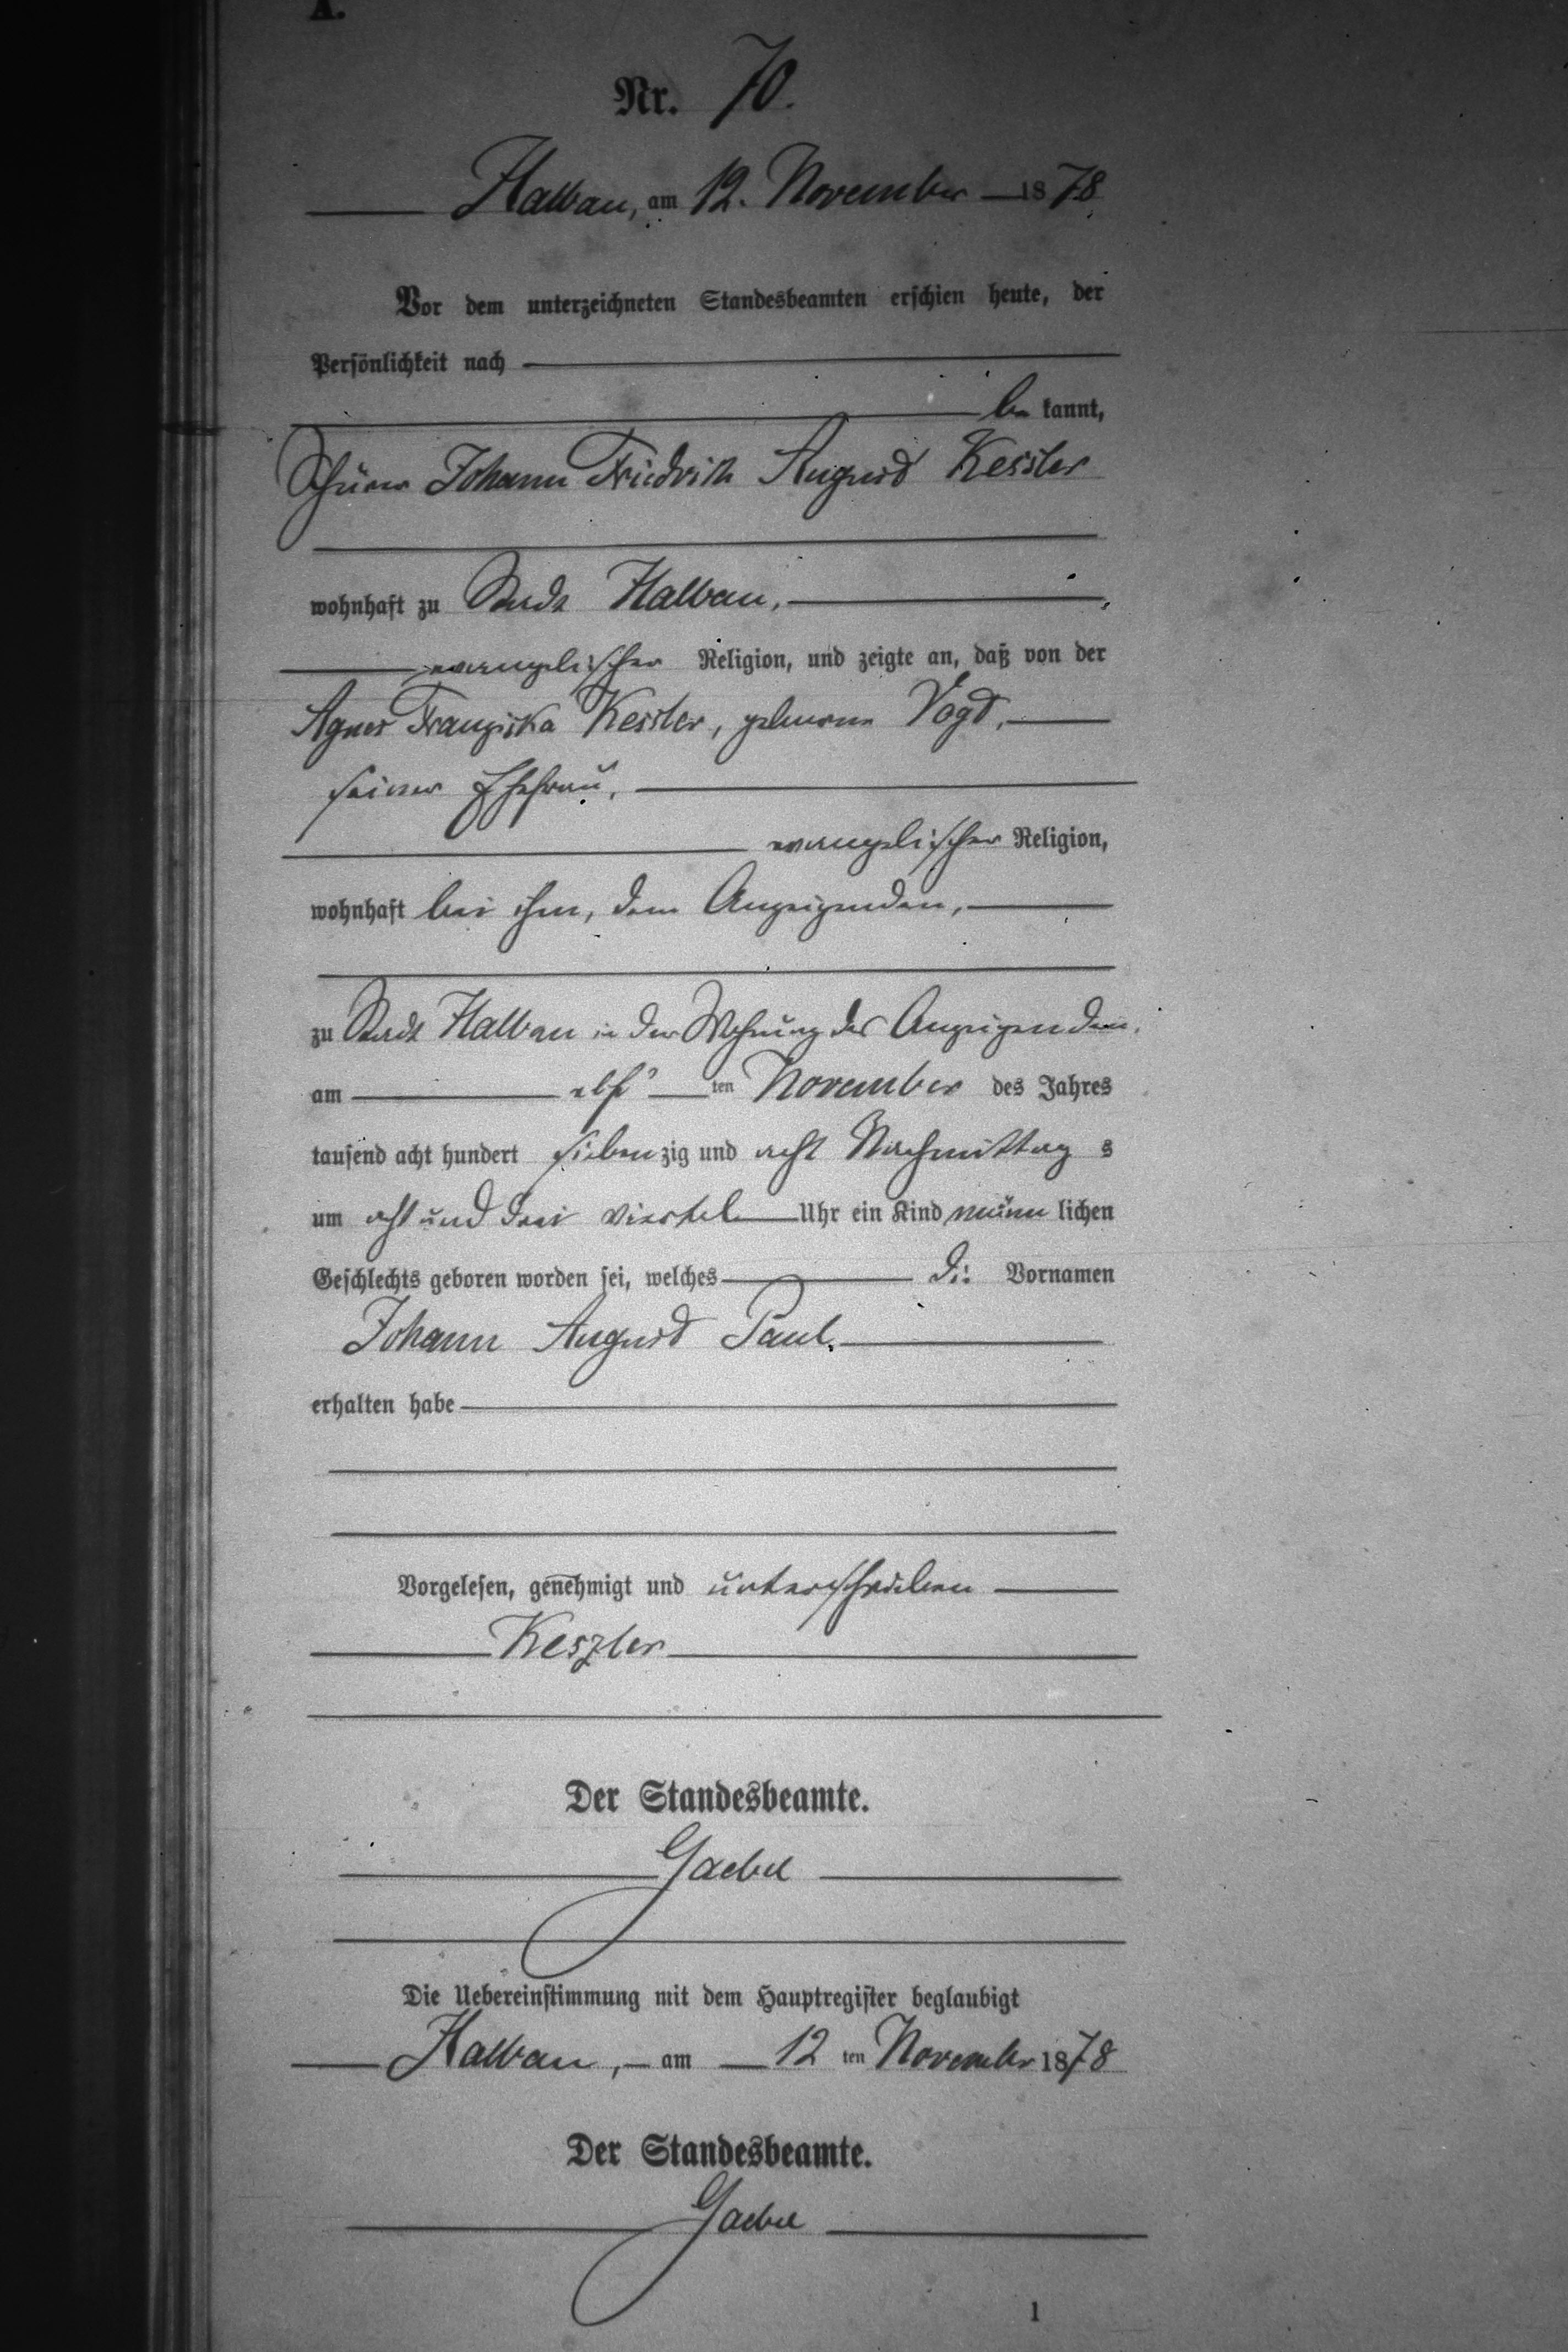 A.
Nr. 70.
Halbau, am 12. November 1878
Vor dem unterzeichneten Standesbeamten erschien heute, der
Persönlichkeit nach
be kannt,
Johann Friedrich August Kessler
wohnhaft zu Stadt Halbau,
evangelischer Religion, und zeigte an, daß von der
Agnes Franziska Kessler, geborene Vogt,
seiner Ehefrau,
evangelischer Religion,
wohnhaft bei ihm, dem Anzeigenden,
zu Stadt Halbau in der Wohnung des Anzeigenden,
am elf ten November des Jahres
tausend acht hundert siebenzig und acht Nachmittag s
um acht und drei viertel Uhr ein Kind männ lichen
Geschlechts geboren worden sei, welches die Vornamen
Johann August Paul.
erhalten habe
Vorgelesen, genehmigt und unterschrieben
Keszler
Der Standesbeamte.
Gaebel
Die Uebereinstimmung mit dem Hauptregister beglaubigt
Halbau, am 12 ten November 1878
Der Standesbeamte.
Gaebel
1